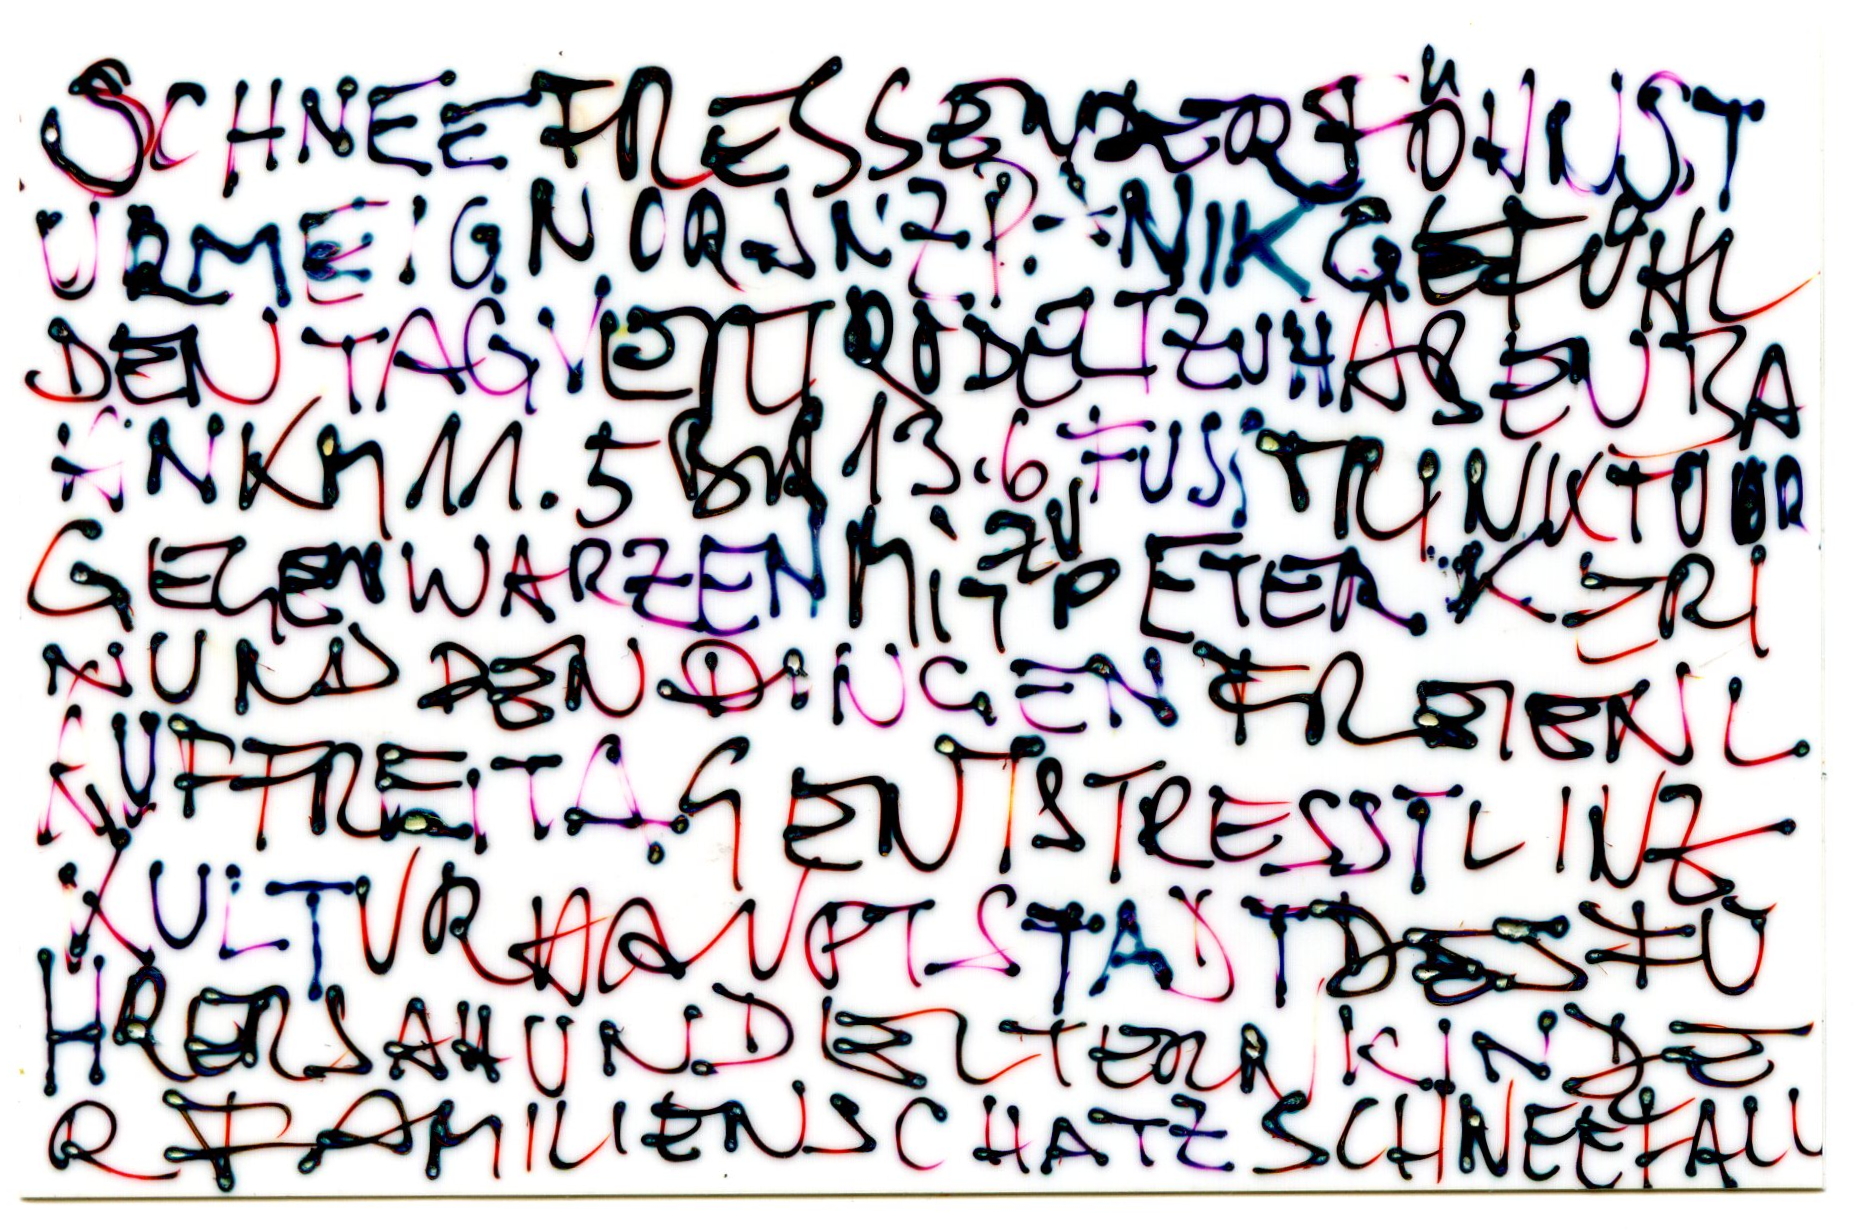 SCHNEEFRESSENDERFÖHNST
URMEIGNORANZP.NIKGEFÜHL
DENTAGVERTRÖDELTZUHABENZA
NKM11.5BM13.6FUSSTRUNKTOUR
GEGENWARZENMITZUPETERKERI
NUNDDENDINGENFREIENL
AUFFREITAGENTSTRESSTLINZ
KULTURHAUPTSTADTDESFÜ
HRERSAHUNDELTERNKINDE
RFAMILIENSCHATZSCHNEEFALL